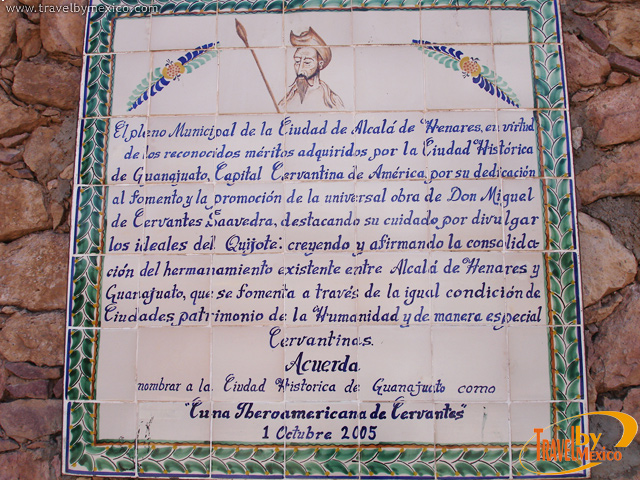 www.travelbymexico.com
El pleno Municipal de la Ciudad de Alcalá de Henares, en virtud
de los reconocidos méritos adquiridos por la Ciudad Histórica
de Guanajuato, Capital Cervantina de América, por su dedicación
al fomento y la promoción de la universal obra de Don Miguel
de Cervantes Saavedra, destacando su cuidado por divulgar
los ideales del Quijote: creyendo y afirmando la consolida-
ción del hermanamiento existente entre Alcalá de Henares y
Guanajuato, que se fomenta a través de la igual condición de
Ciudades patrimonio de la Humanidad y de manera especial
Cervantinas.
Acuerda
nombrar a la Ciudad Historica de Guanajuato como
"Cuna Iberoamericana de Cervantes"
1 Octubre 2005
Travel by México